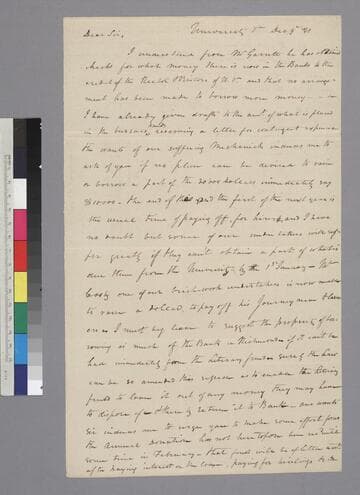 University Va Decr 9th 21
Dear Sir,
I understand from Mr Garrett he has
checks for what money there is now in the Bank to the
credit of the Rector & Visitors of the Va and that no arrange-
ment has been made to borrow more money
I have already given drafts to the amt. of what is placed
in the bursars hands, a letter for contingent expences
the wants of our suffering Mechanicks induces me to
ask of you if no plan can be devised to raise
or borrow a part of the dollars immediately say
$10000. The end of this and the first of the next year is
the usual time of paying off, for hires &c, and I have
no doubt but some of our undertakers will suf-
fer greatly if they can't obtain a part of what is
due them from the University by the 1st January Mr
one of our brickwork undertakers is now
to raise a dollar, to pay off his Journeymen
I must beg leave to suggest the propriety of bor-
rowing as much of the Bank in Richmond if it can't be
had immediately from the literary fund surely the law
can be so amended this session as to enable the literary
fund to loan it out of any money they may have
to dispose of & return it to Bank our wants
Sir induces me to urge you to make some effort for
the annual donation has not heretofore been recd until
some time in February that fund will be of little
after paying interest on the loan, paying for hirelings &c